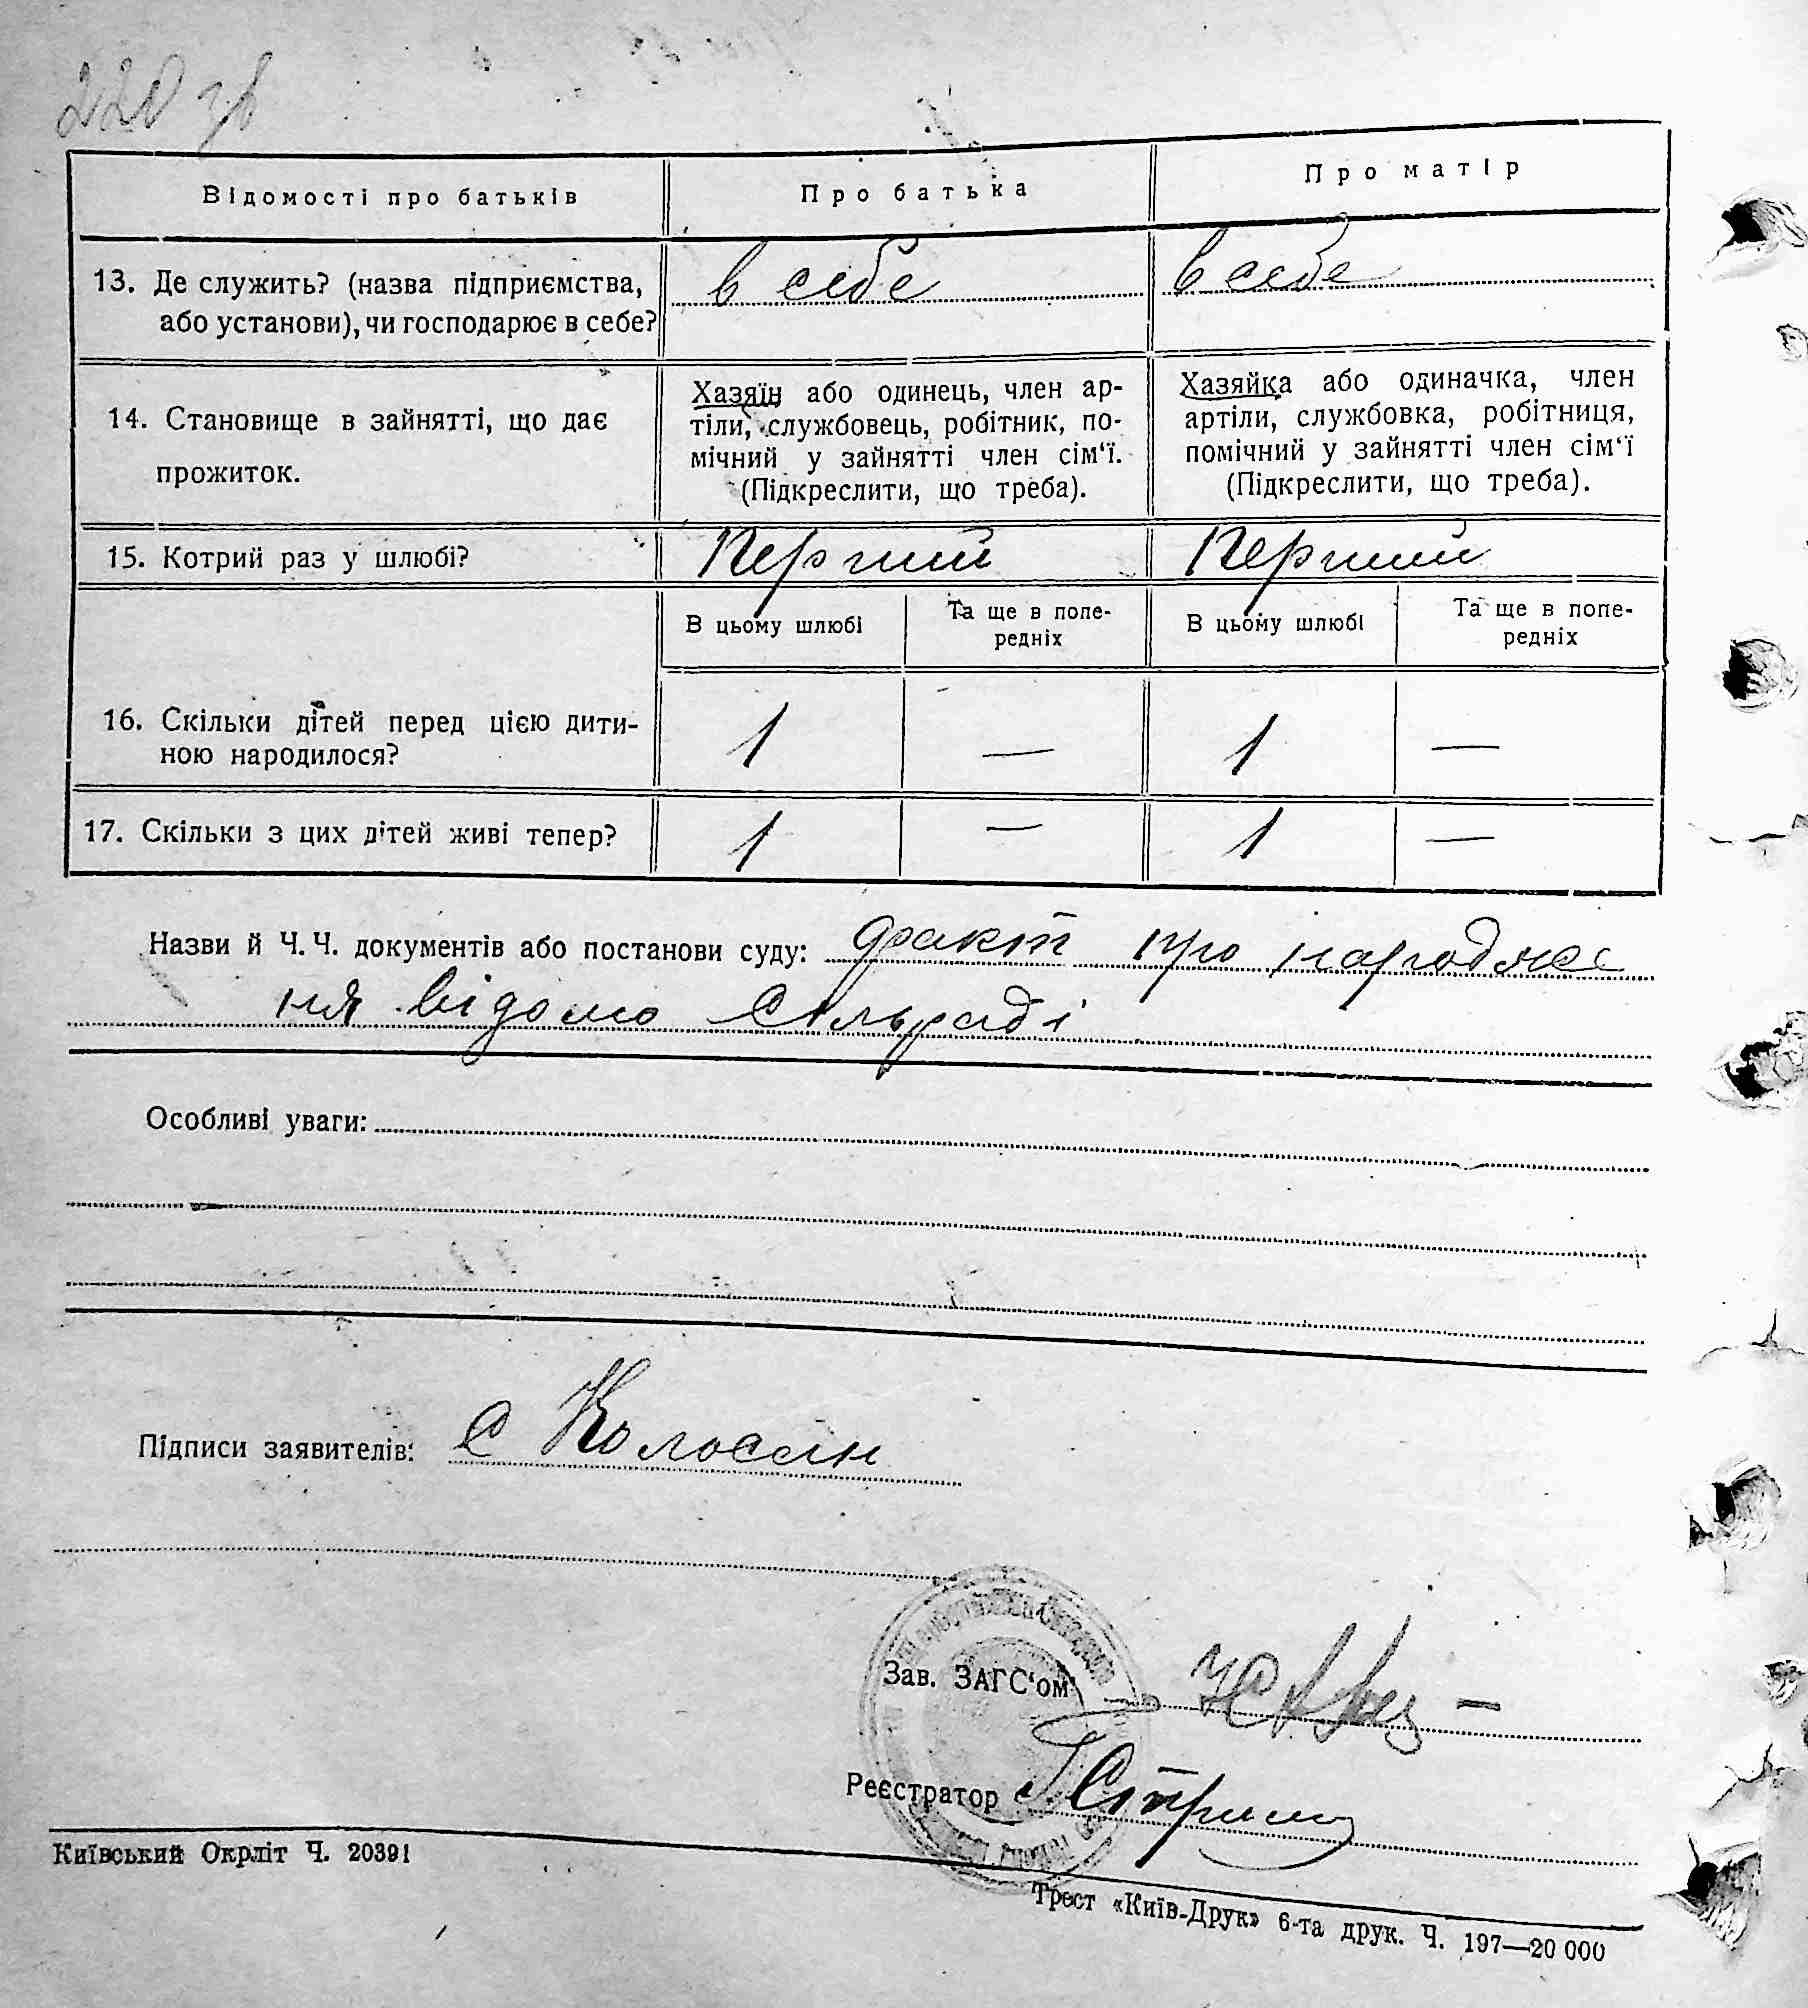 220 зв
Відомості про батьків
Про батька
Про матір
13. Де служить? (назва підприємства,
або установи), чи господарює в себе?
в себе
в себе
14. Становище в зайнятті, що дає
прожиток.
Хазяїн або одинець, член ар-
тіли, службовець, робітник, по-
мічний у зайнятті член сім‘ї.
(Підкреслити, що треба).
Хазяйка або одиначка, член
артіли, службовка, робітниця,
помічний у зайнятті член сім‘ї
(Підкреслити, що треба).
15. Котрий раз у шлюбі?
Перший
Перший
В цьому шлюбі
Та ще в попе-
редніх
В цьому шлюбі
Та ще в попе-
редніх
16. Скільки дітей перед цією дити-
ною народилося?
1
—
1
—
17. Скільки з цих дітей живі тепер?
1
—
1
—
Назви й Ч.Ч. документів або постанови суду: факт про народже
ння відомо сільраді
Особливі уваги:
Підписи заявителів: С Колосян
Зав. ЗАГС‘ом
Реєстратор
Київський Окрліт Ч. 20391
Трест «Київ-Друк» 6-та друк. Ч. 197—20 000